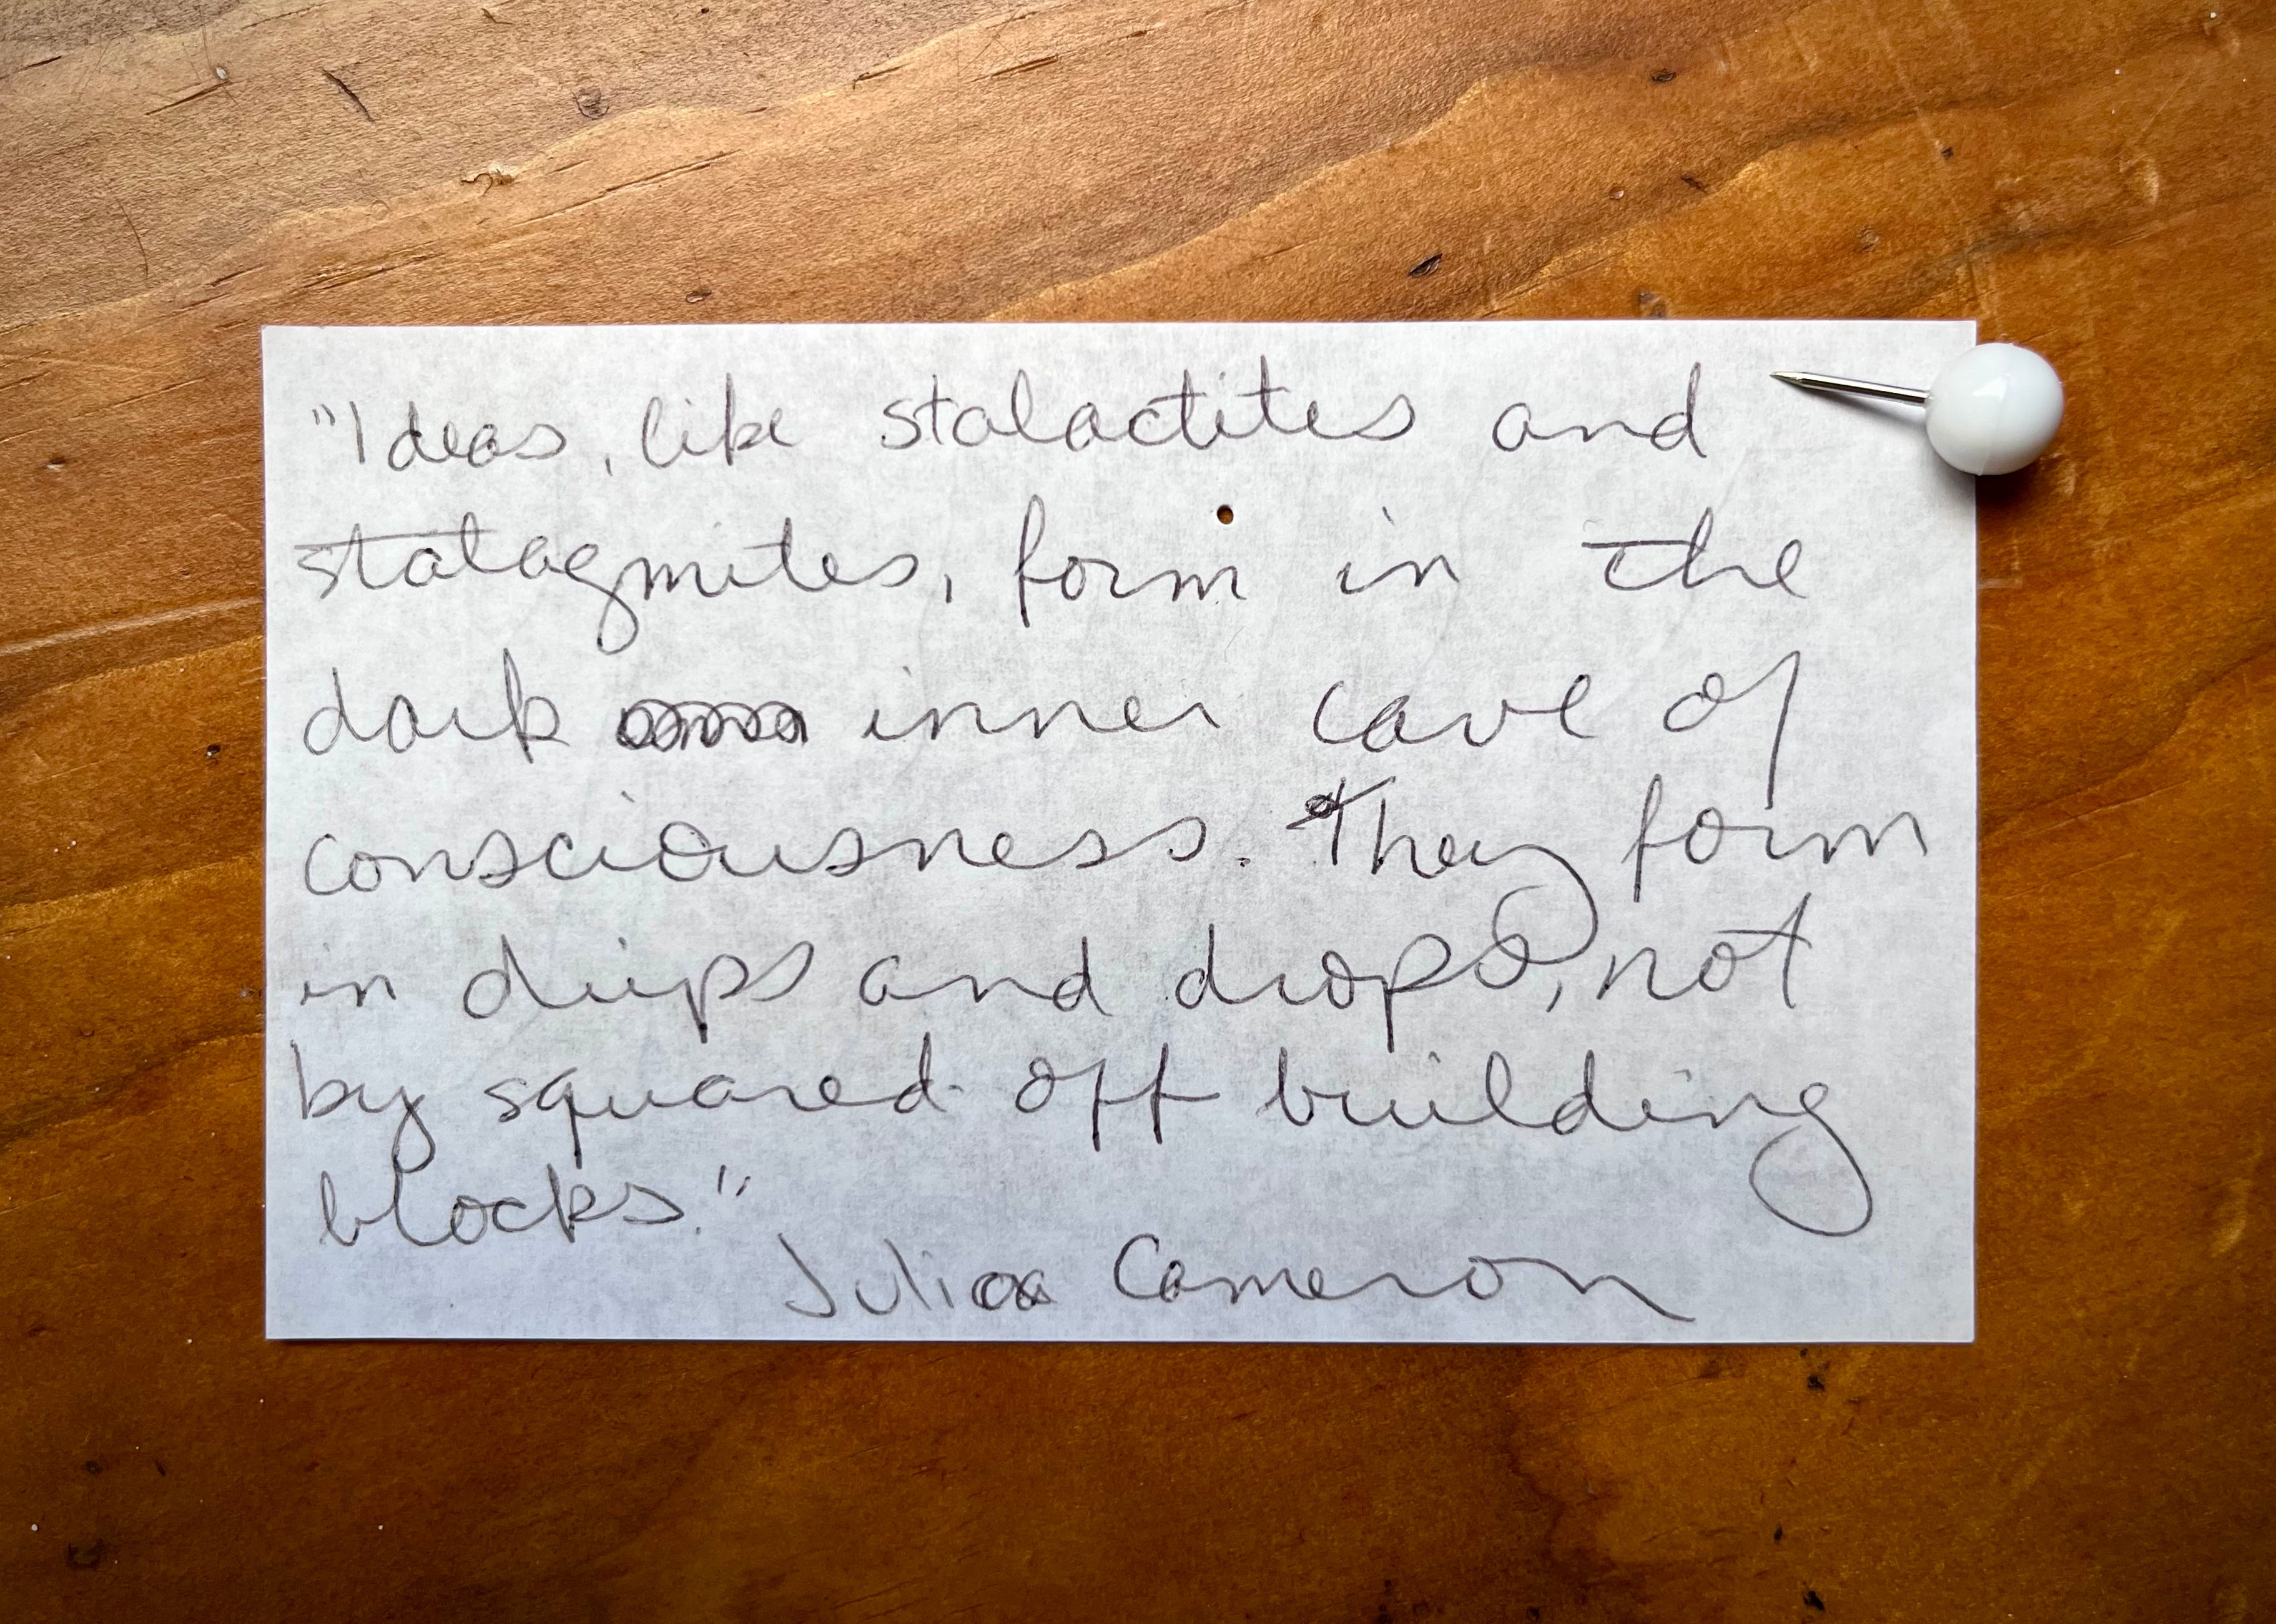 "Ideas, like stalactites and
statagmites, form in the
dark inner cave of
consciousness. They form
in drips and drops, not
by squared off building
blocks."
Julia Cameron